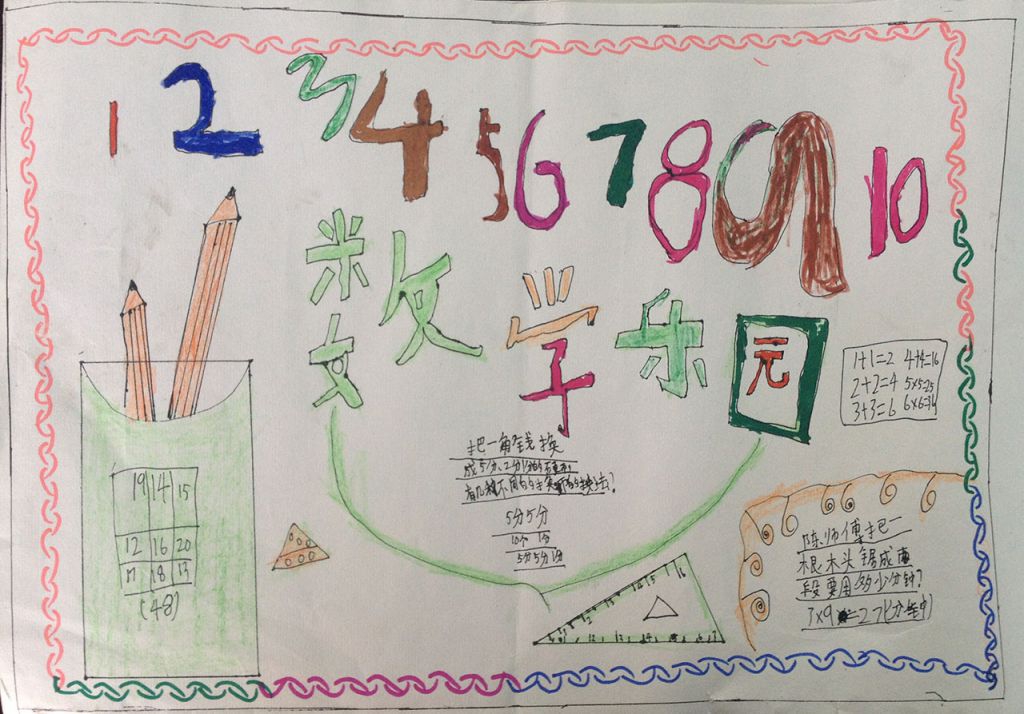 1 2 3 4 5 6 7 8 9 10
数学乐园
1+1=2 4+4=16
2+2=4 5×5=25
3+3=6 6×6=36
19 14 15
12 16 20
17 18 13
(48)
把一角钱换
成5分、2分、1分的
有几种不同的 换法?
5分5分
10个1分
5分5分
陈师傅把一
根木头锯成
段要用多少分钟?
×9 =27(分钟)
14 15 16
12 13 14